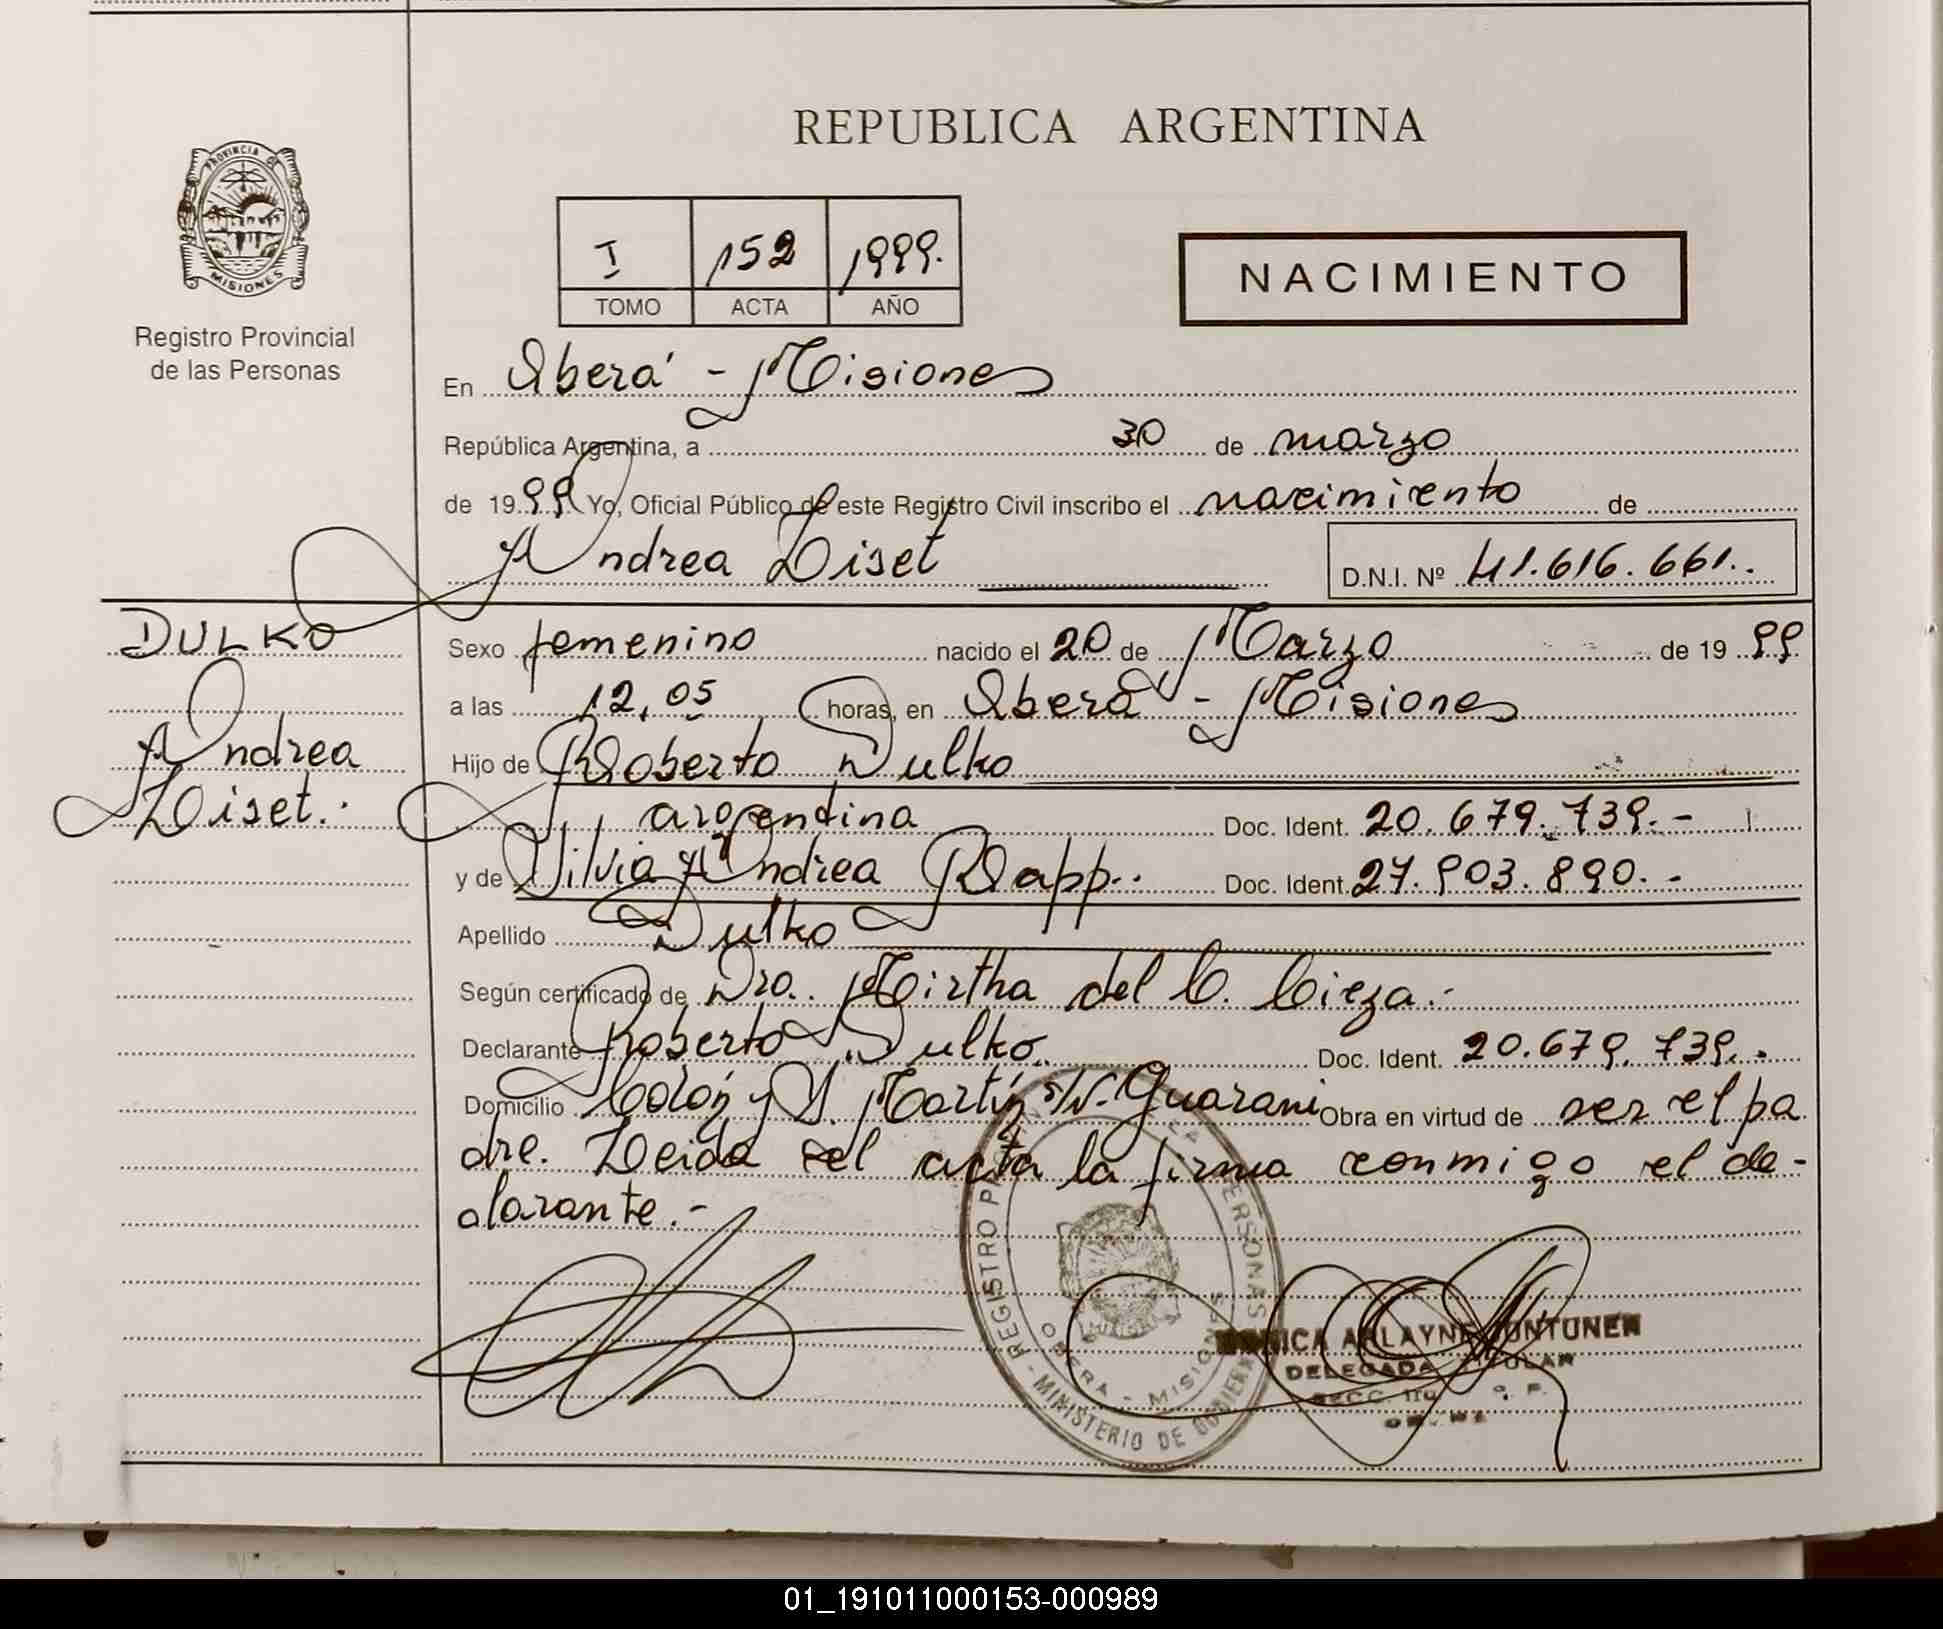 REPUBLICA ARGENTINA
PROVINCIA DE
MISIONES
Registro Provincial
de las Personas
I 152 1999.
TOMO ACTA AÑO
NACIMIENTO
En Oberá - Misiones
República Argentina, a 30 de marzo
de 1999 Yo, Oficial Público de este Registro Civil inscribo el nacimiento de
Andrea Liset
D.N.I. Nº 41.616.661..
DULKO
Andrea
Liset.
Sexo femenino nacido el 20 de Marzo de 1999
a las 12,05 horas, en Oberá - Misiones
Hijo de Roberto Dulko
argentina Doc. Ident. 20.679.739.-
y de Silvia Andrea Rapp.. Doc. Ident. 27.903.890.-
Apellido Dulko
Según certificado de Dra. Mirtha del C. Cieza.-
Declarante Roberto Dulko. Doc. Ident. 20.679.739..
Domicilio Colón y S. Martín s/N. Guarani Obra en virtud de ser el pa
dre. Leida el acta la firma conmigo el de-
clarante.-
REGISTRO PERSONAS
OBERA - MISIONES
- MINISTERIO DE GOBIERNO
DELEGADA TITULAR
01_191011000153-000989